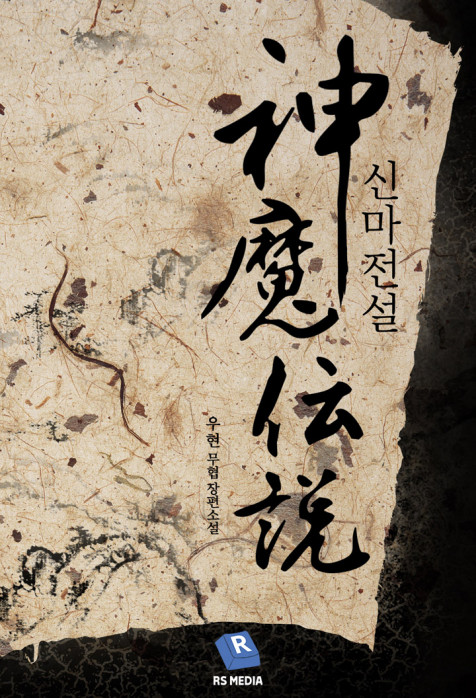 神魔伝説
신마전설
우현 무협 장편소설
R
RS MEDIA